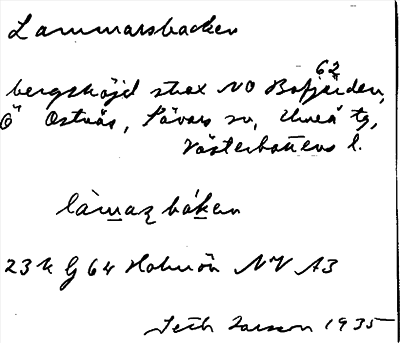 Lammarsbacken
62
bergshöjd strax NO Bofjärden,
Ö Ostnäs, Sävars sn, Umeå tg,
Västerbottens l.
làmaz báken
23 K G 64 Holmön NV A3
Seth Larsson 1935